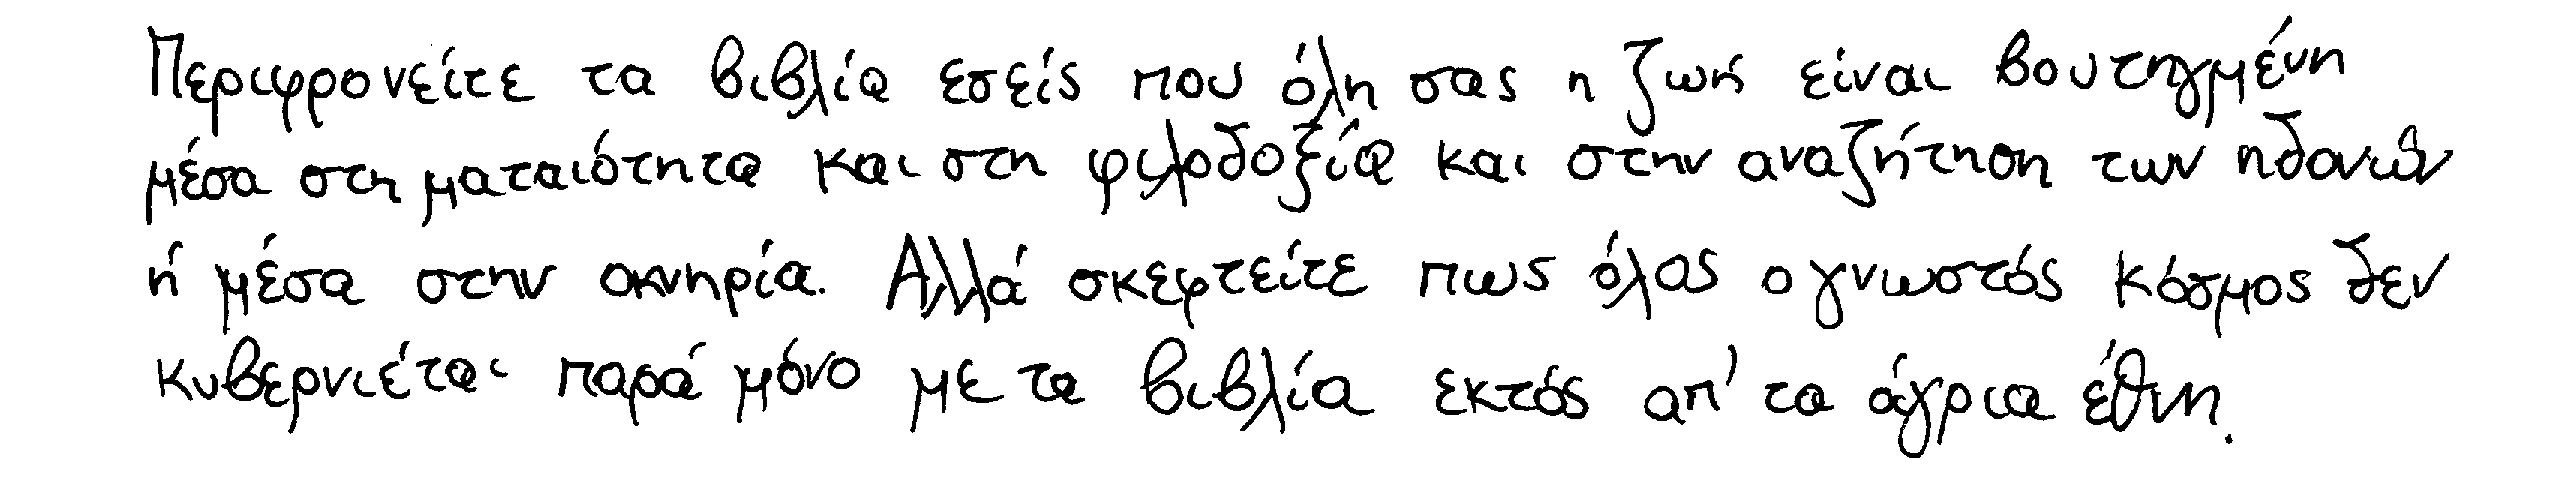 Περιφρονείτε τα βιβλία εσείς που όλη σας η ζωή είναι βουτηγμένη
μέσα στη ματαιότητα και στη φιλοδοξία και στην αναζήτηση των ηδονών
ή μέσα στην οκνηρία. Αλλά σκεφτείτε πως όλος ο γνωστός κόσμος δεν
κυβερνιέται παρά μόνο με τα βιβλία εκτός απ' τα άγρια έθνη.